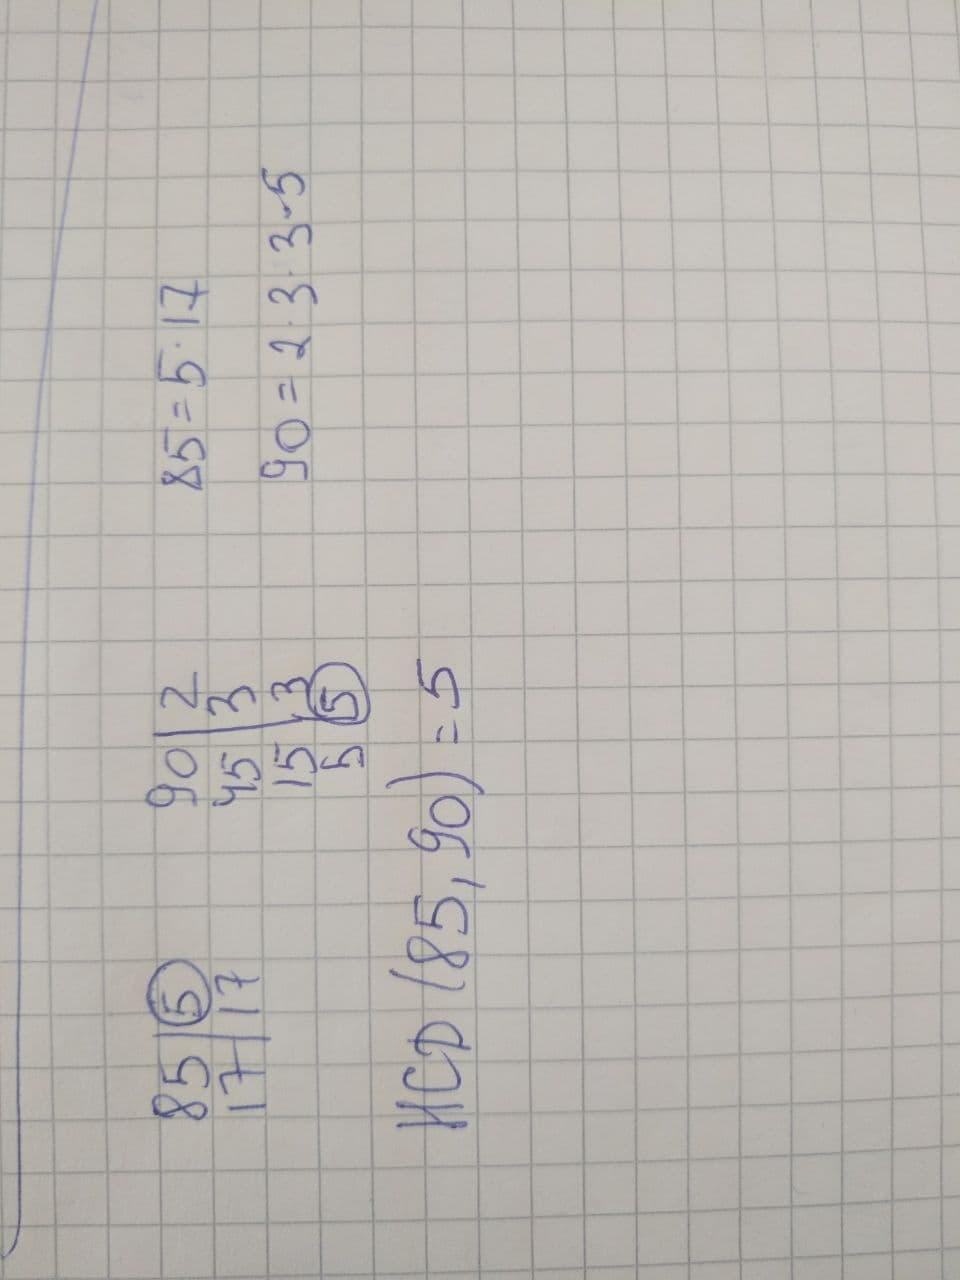 85|5 90|2 85=5·17
17|17 45|3 90=2·3·3·5
15|3
5|5
НСД (85, 90) = 5